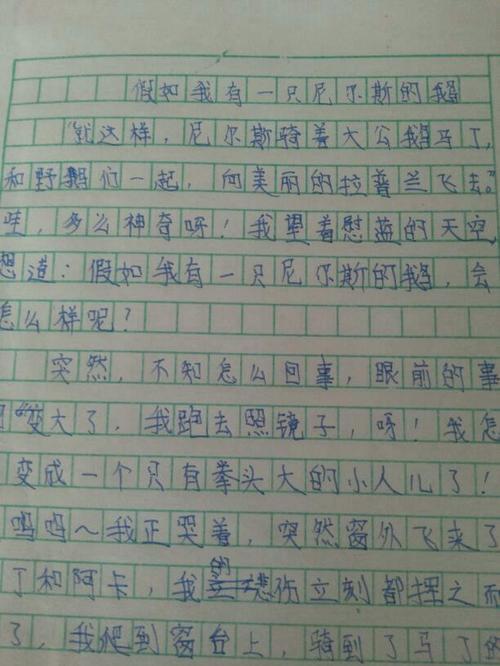 假如我有一只尼尔斯的鹅
“就这样，尼尔斯骑着大公鹅马丁，
和野鹅们一起，向美丽的拉普兰飞去。”
哇，多么神奇呀！我望着慰蓝的天空
想道：假如我有一只尼尔斯的鹅，会
怎么样呢？
突然，不知怎么回事，眼前的事
“变大了，我跑去照镜子，呀！我怎
变成一个只有拳头大的小人儿了！
呜呜～我正哭着，突然窗外飞来了
丁和阿卡，我的悲伤立刻都挥之而
了，我爬到窗台上，骑到了马丁的